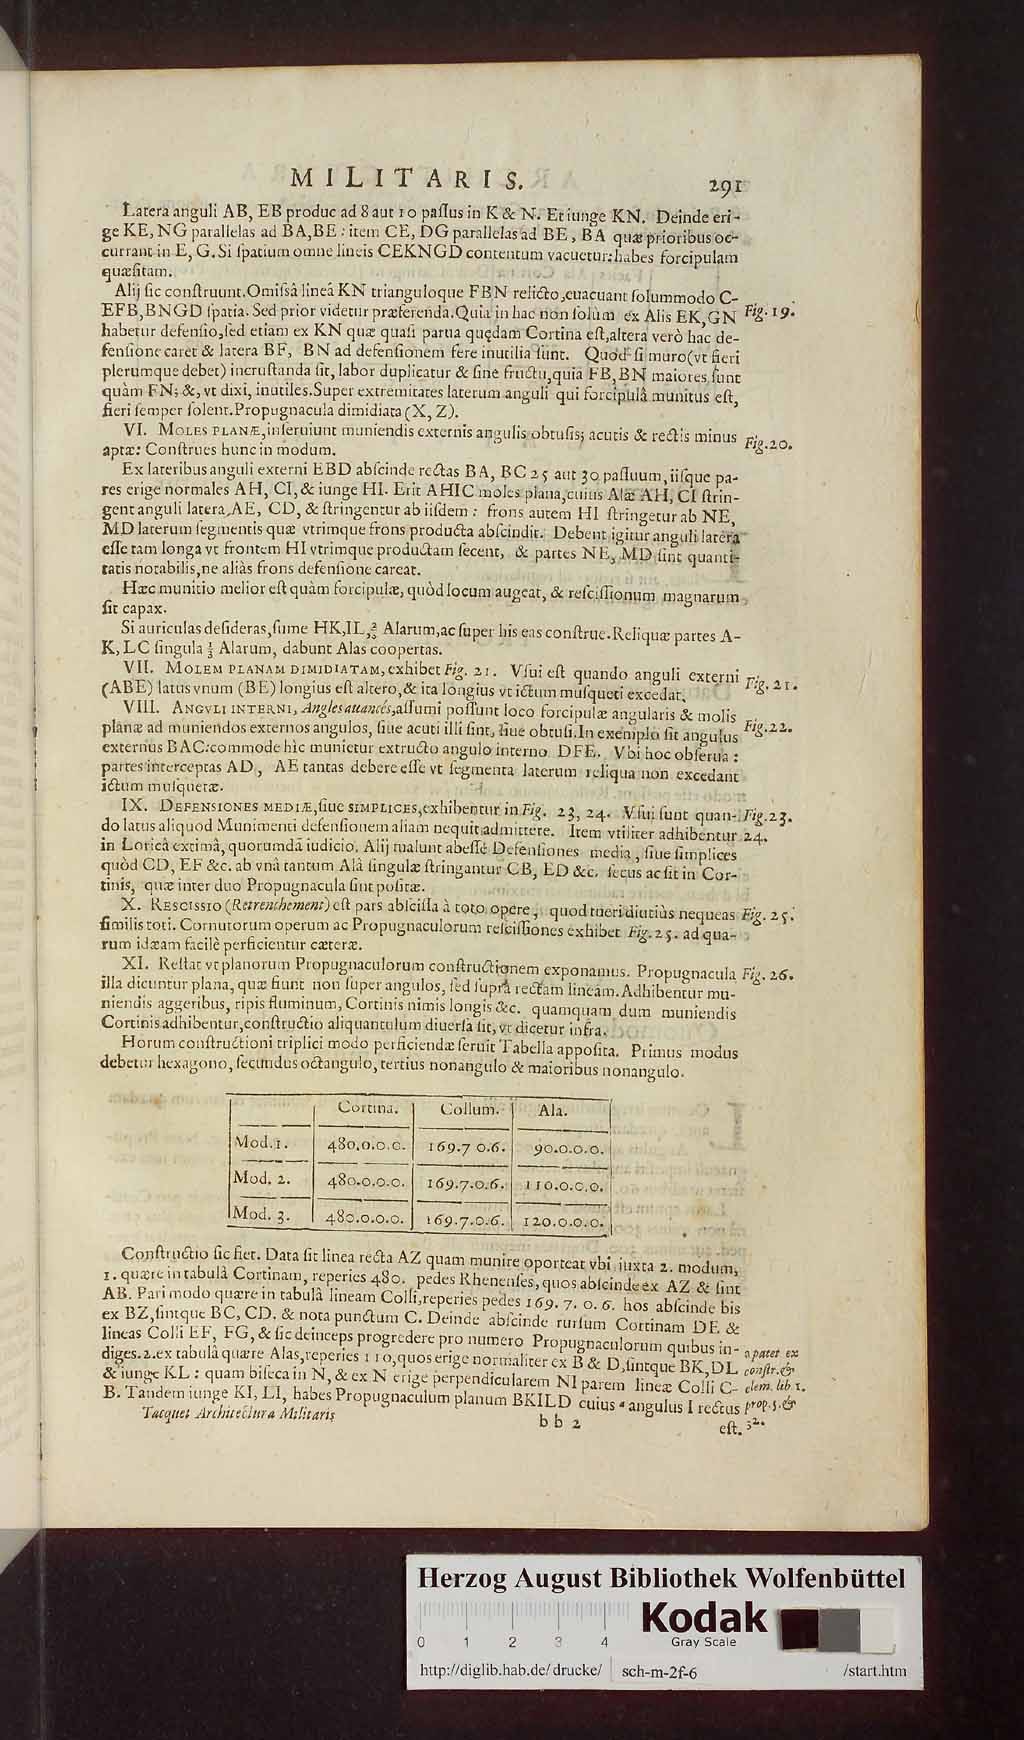 MILITARIS. 291
Latera anguli AB, EB produc ad 8 aut 10 paſſus in K & N. Et iunge KN. Deinde eri-
ge KE, NG parallelas ad BA, BE: item CE, DG parallelas ad BE, BA quæ prioribus oc-
currant in E, G. Si ſpatium omne lineis CEKNGD contentum vacuetur: habes forcipulam
quæſitam.
Alij ſic conſtruunt. Omiſsâ lineâ KN trianguloque FBN relicto, euacuant ſolummodo C-
EFB, BNGD ſpatia. Sed prior videtur præferenda. Quia in hac non ſolùm ex Alis EK, GN Fig. 19.
habetur defenſio, ſed etiam ex KN quæ quaſi parua quędam Cortina eſt, altera verò hac de-
fenſione caret & latera BF, BN ad defenſionem fere inutilia ſunt. Quod ſi muro (vt fieri
plerumque debet) incruſtanda ſit, labor duplicatur & ſine fructu, quia FB, BN maiores ſunt
quàm FN; &, vt dixi, inutiles. Super extremitates laterum anguli qui forcipulâ munitus eſt,
fieri ſemper ſolent. Propugnacula dimidiata (X, Z).
VI. MOLES PLANÆ, inſeruiunt muniendis externis angulis obtuſis; acutis & rectis minus Fig. 20.
aptæ: Conſtrues hunc in modum.
Ex lateribus anguli externi EBD abſcinde rectas BA, BC 25 aut 30 paſſuum, iiſque pa-
res erige normales AH, CI, & iunge HI. Erit AHIC moles plana, cuius Alæ AH, CI ſtrin-
gent anguli latera, AE, CD, & ſtringentur ab iiſdem: frons autem HI ſtringetur ab NE,
MD laterum ſegmentis quæ vtrimque frons producta abſcindit. Debent igitur anguli latera
eſſe tam longa vt frontem HI vtrimque productam ſecent, & partes NE, MD ſint quanti-
tatis notabilis, ne aliàs frons defenſione careat.
Hæc munitio melior eſt quàm forcipulæ, quòd locum augeat, & reſciſſionum magnarum
ſit capax.
Si auriculas deſideras, ſume HK, IL, 2/3 Alarum, ac ſuper his eas conſtrue. Reliquæ partes A-
K, LC ſingula 1/3 Alarum, dabunt Alas coopertas.
VII. MOLEM PLANAM DIMIDIATAM, exhibet Fig. 21. Vſui eſt quando anguli externi Fig. 21.
(ABE) latus vnum (BE) longius eſt altero, & ita longius vt ictum muſqueti excedat.
VIII. ANGVLI INTERNI, Angles auancés, aſſumi poſſunt loco forcipulæ angularis & molis
planæ ad muniendos externos angulos, ſiue acuti illi ſint, ſiue obtuſi. In exemplo ſit angulus Fig. 22.
externus BAC: commode hìc munietur extructo angulo interno DFE. Vbi hoc obſerua:
partes interceptas AD, AE tantas debere eſſe vt ſegmenta laterum reliqua non excedant
ictum muſquetæ.
IX. DEFENSIONES MEDIÆ, ſiue SIMPLICES, exhibentur in Fig. 23, 24. Vſui ſunt quan- Fig. 23.
do latus aliquod Munimenti defenſionem aliam nequit admittere. Item vtiliter adhibentur 24.
in Loricâ extimâ, quorumdâ iudicio. Alij malunt abeſſe Defenſiones media, ſiue ſimplices
quòd CD, EF &c. ab vnâ tantum Alâ ſingulæ ſtringantur CB, ED &c. ſecus ac ſit in Cor-
tinis, quæ inter duo Propugnacula ſint poſitæ.
X. RESCISSIO (Retrenchement) eſt pars abſciſſa à toto opere, quod tueri diutiùs nequeas Fig. 25.
ſimilis toti. Cornutorum operum ac Propugnaculorum reſciſſiones exhibet Fig. 25. ad qua-
rum idæam facilè perficientur cæteræ.
XI. Reſtat vt planorum Propugnaculorum conſtructionem exponamus. Propugnacula Fig. 26.
illa dicuntur plana, quæ fiunt non ſuper angulos, ſed ſupra rectam lineam. Adhibentur mu-
niendis aggeribus, ripis fluminum, Cortinis nimis longis &c. quamquam dum muniendis
Cortinis adhibentur, conſtructio aliquantulum diuerſa ſit, vt dicetur infra.
Horum conſtructioni triplici modo perficiendæ ſeruit Tabella appoſita. Primus modus
debetur hexagono, ſecundus octangulo, tertius nonangulo & maioribus nonangulo.
Cortina. Collum. Ala.
Mod. 1. 480.0.0.0. 169.7 0.6. 90.0.0.0.
Mod. 2. 480.0.0.0. 169.7.0.6. 110.0.0.0.
Mod. 3. 480.0.0.0. 169.7.0.6. 120.0.0.0.
Conſtructio ſic fiet. Data ſit linea recta AZ quam munire oporteat vbi iuxta 2. modum,
1. quære in tabulâ Cortinam, reperies 480. pedes Rhenenſes, quos abſcinde ex AZ & ſint
AB. Pari modo quære in tabulâ lineam Colli, reperies pedes 169. 7. 0. 6. hos abſcinde bis
ex BZ, ſintque BC, CD. & nota punctum C. Deinde abſcinde rurſum Cortinam DE &
lineas Colli EF, FG, & ſic deinceps progredere pro numero Propugnaculorum quibus in-
diges. 2. ex tabulâ quære Alas, reperies 110, quos erige normaliter ex B & D, ſintque BK, DL a patet ex
& iunge KL: quam biſeca in N, & ex N erige perpendicularem NI parem lineæ Colli C- conſtr. &
B. Tandem iunge KI, LI, habes Propugnaculum planum BKILD cuius a angulus I rectus elem. lib 1.
Tacquet Architectura Militaris b b 2 eſt. prop. 5. &
32.
Herzog August Bibliothek Wolfenbüttel
Kodak
Gray Scale
0 1 2 3 4
http://diglib.hab.de/drucke/ sch-m-2f-6 /start.htm